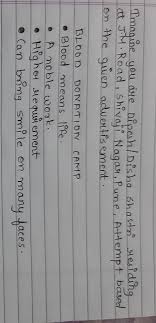 Imagine you are Dipesh/Disha Shastri residing
at JM. Road, Shivaji Nagar, Pune, Attempt based
on the given advertisement.
BLOOD DONATION CAMP
• Blood means life
• A noble work.
• Higher requirement
• Can bring smile on many faces.